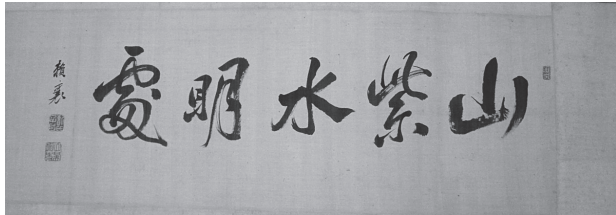 山紫水明處
賴襄